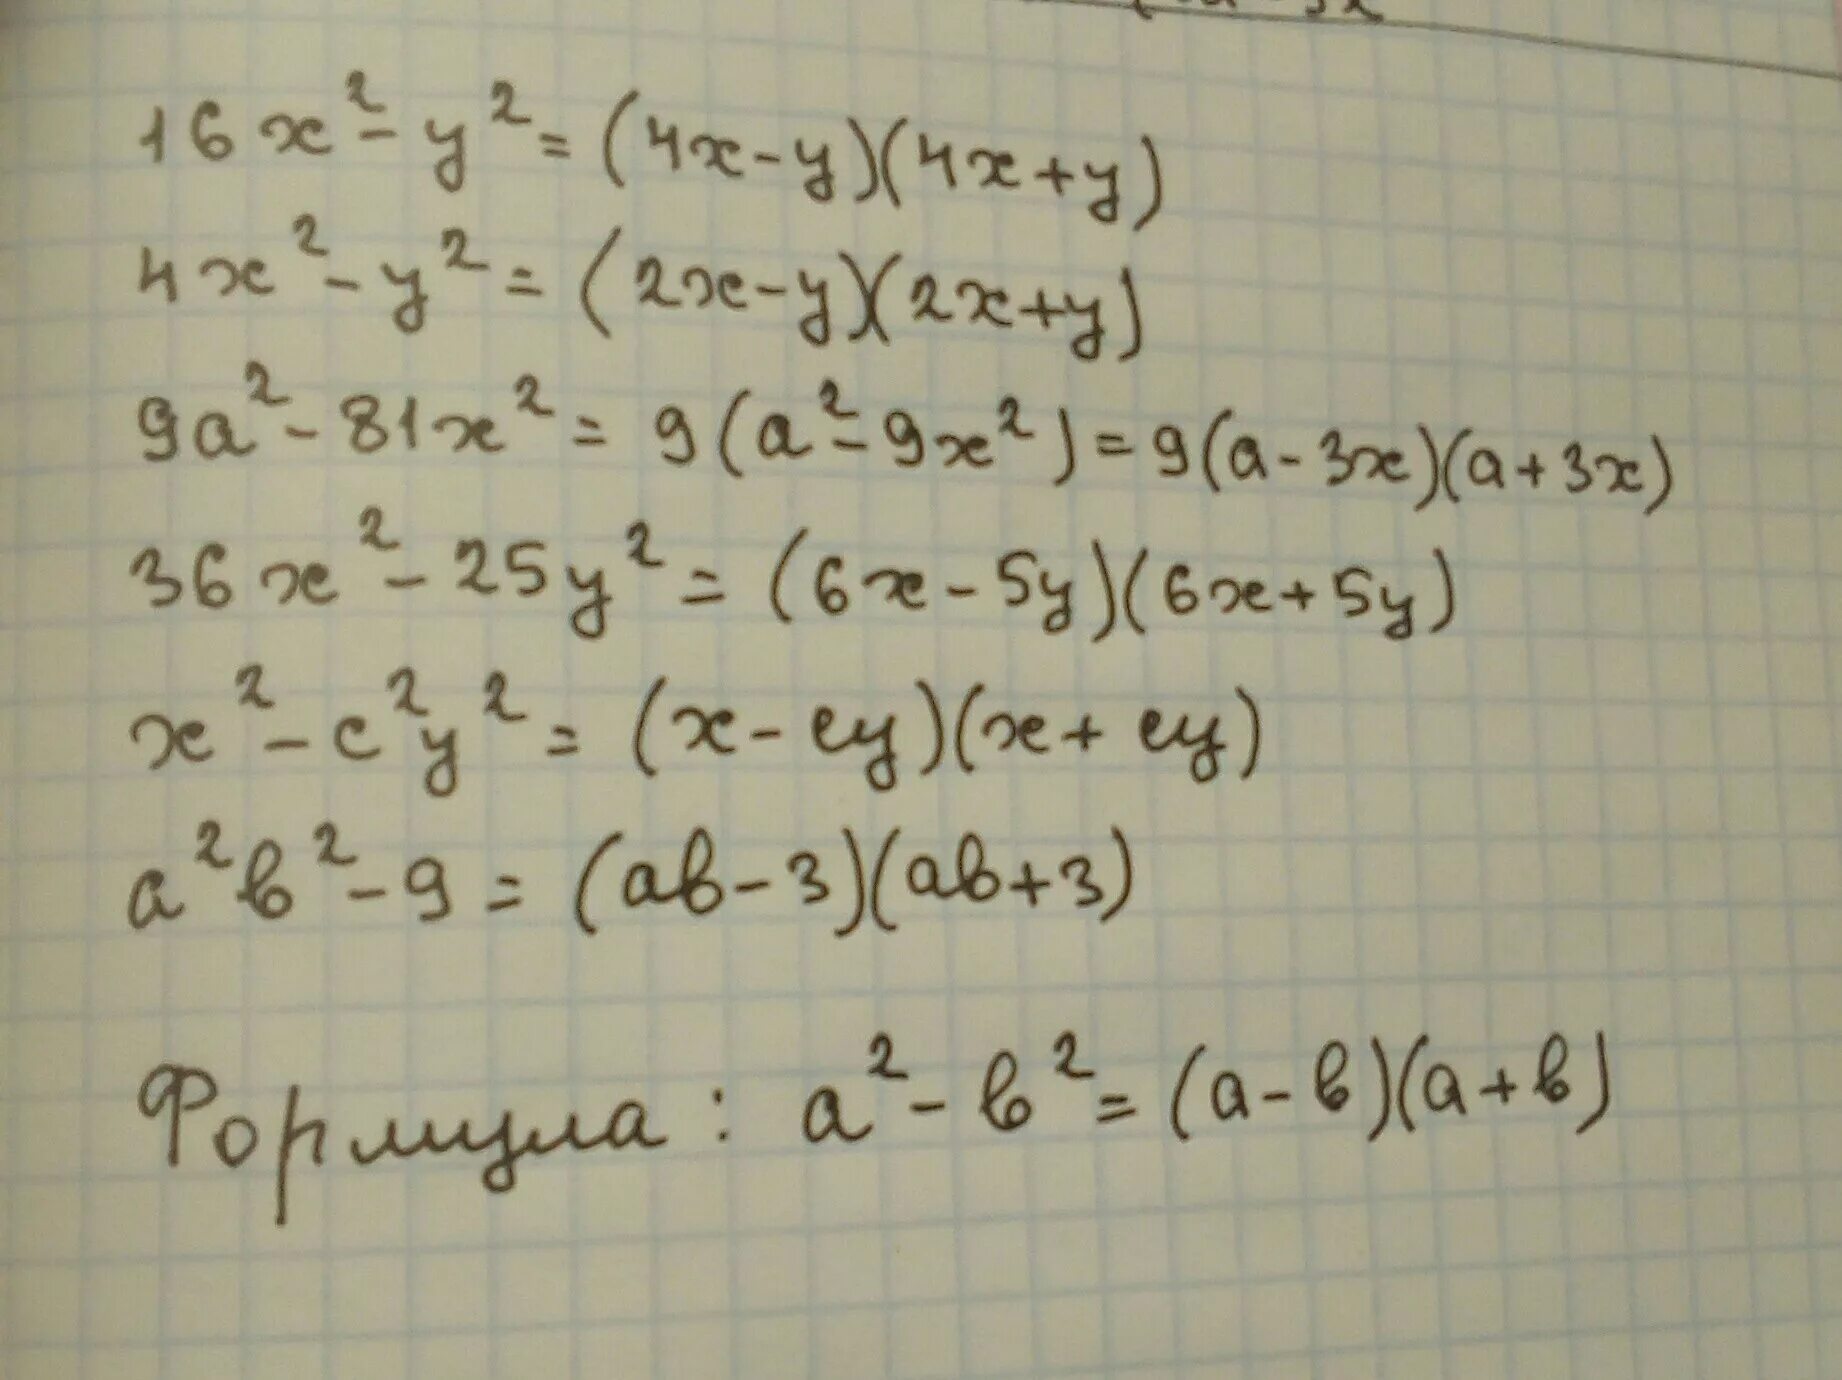 16x² - y² = (4x - y)(4x + y)
4x² - y² = (2x - y)(2x + y)
9a² - 81x² = 9(a² - 9x²) = 9(a - 3x)(a + 3x)
36x² - 25y² = (6x - 5y)(6x + 5y)
x² - c²y² = (x - cy)(x + cy)
a²в² - 9 = (aв - 3)(aв + 3)
Формула: a² - в² = (a - в)(a + в)